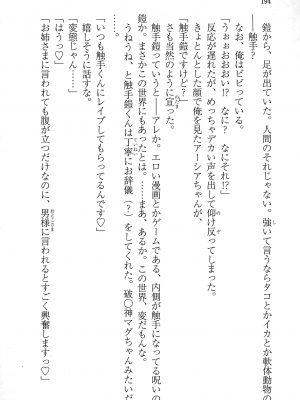 194
鎧から、足が出ていた。人間のそれじゃない。強いて言うならタコとかイカとか軟体動物の
――触手？
なお、俺はビビっている。
「うぉぉおおおい!?　なに？　なにそれ!?」
反応が遅れたが、めっちゃデカい声を出して仰け反ってしまった。
きょとんとした顔で俺を見たアーシアちゃんが、
「触手鎧ですけど？」
さも当然のように宣った。
触手鎧っていうと――アレか。エロい漫画とかゲームである、内側が触手になってる呪いの
鎧か。まさかこの世界にもあったとは。……まあ、あるか。この世界、変だもんな。
うねうね、と触手鎧くんは丁寧にお辞儀（？）をしてくれた。破〇神マグちゃんみたい
「いつも触手くんにレイプしてもらってるんです♡」
嬉しそうに話すな。
「変態じゃん……」
「はうっ♡」
「お姉さまに言われても腹が立つだけなのに、男様に言われるとすごく興奮しますっ♡」